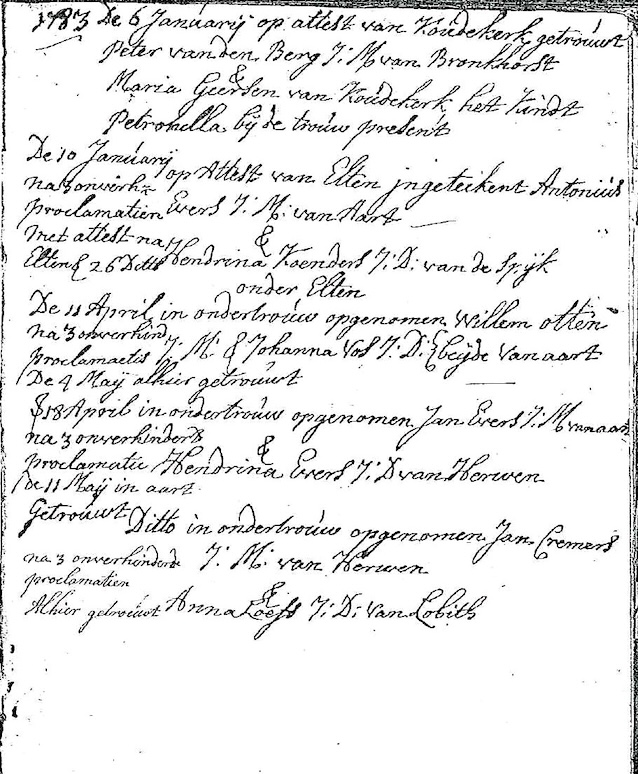 1783 De 6 Januarij op attest van Koudekerk getrouwt
Peter van den Berg J: M van Bronkhorst
&
Maria Geersen van Koudekerk het Kindt
Petronella bij de trouw present
De 10 Januarij op Attest van Elten jngeteikent Antonius
na 3 onverh:
proclamatien Evers J: M: van Aart
met attest na
&
Elten 26 Ditto Hendrina Koenders J: D: van de Spijk
onder Elten
De 11 April in ondertrouw opgenomen Willem otten
na 3 onverhind
proclamaetis J: M: & Johanna Vos J: D: beijde van aart
De 4 Maij alhier getrouwt
18 April in ondertrouw opgenomen Jan Evers J: M van aart
na 3 onverhinderde
&
proclamatie Hendrina Evers J: D van Herwen
de 11 Maij in aart
Getrouwt
Ditto in ondertrouw opgenomen Jan Cremers
na 3 onverhinderde J: M: van Herwen
proclamatien
&
Alhier getrouwt Anna J: D: van Lobith